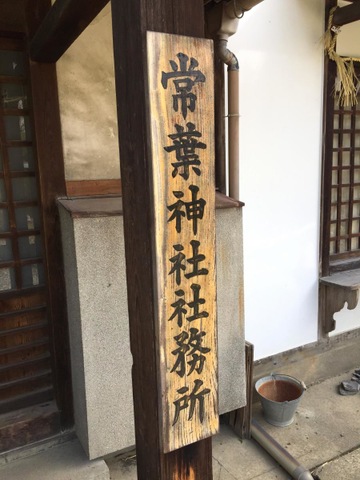 常葉神社社務所